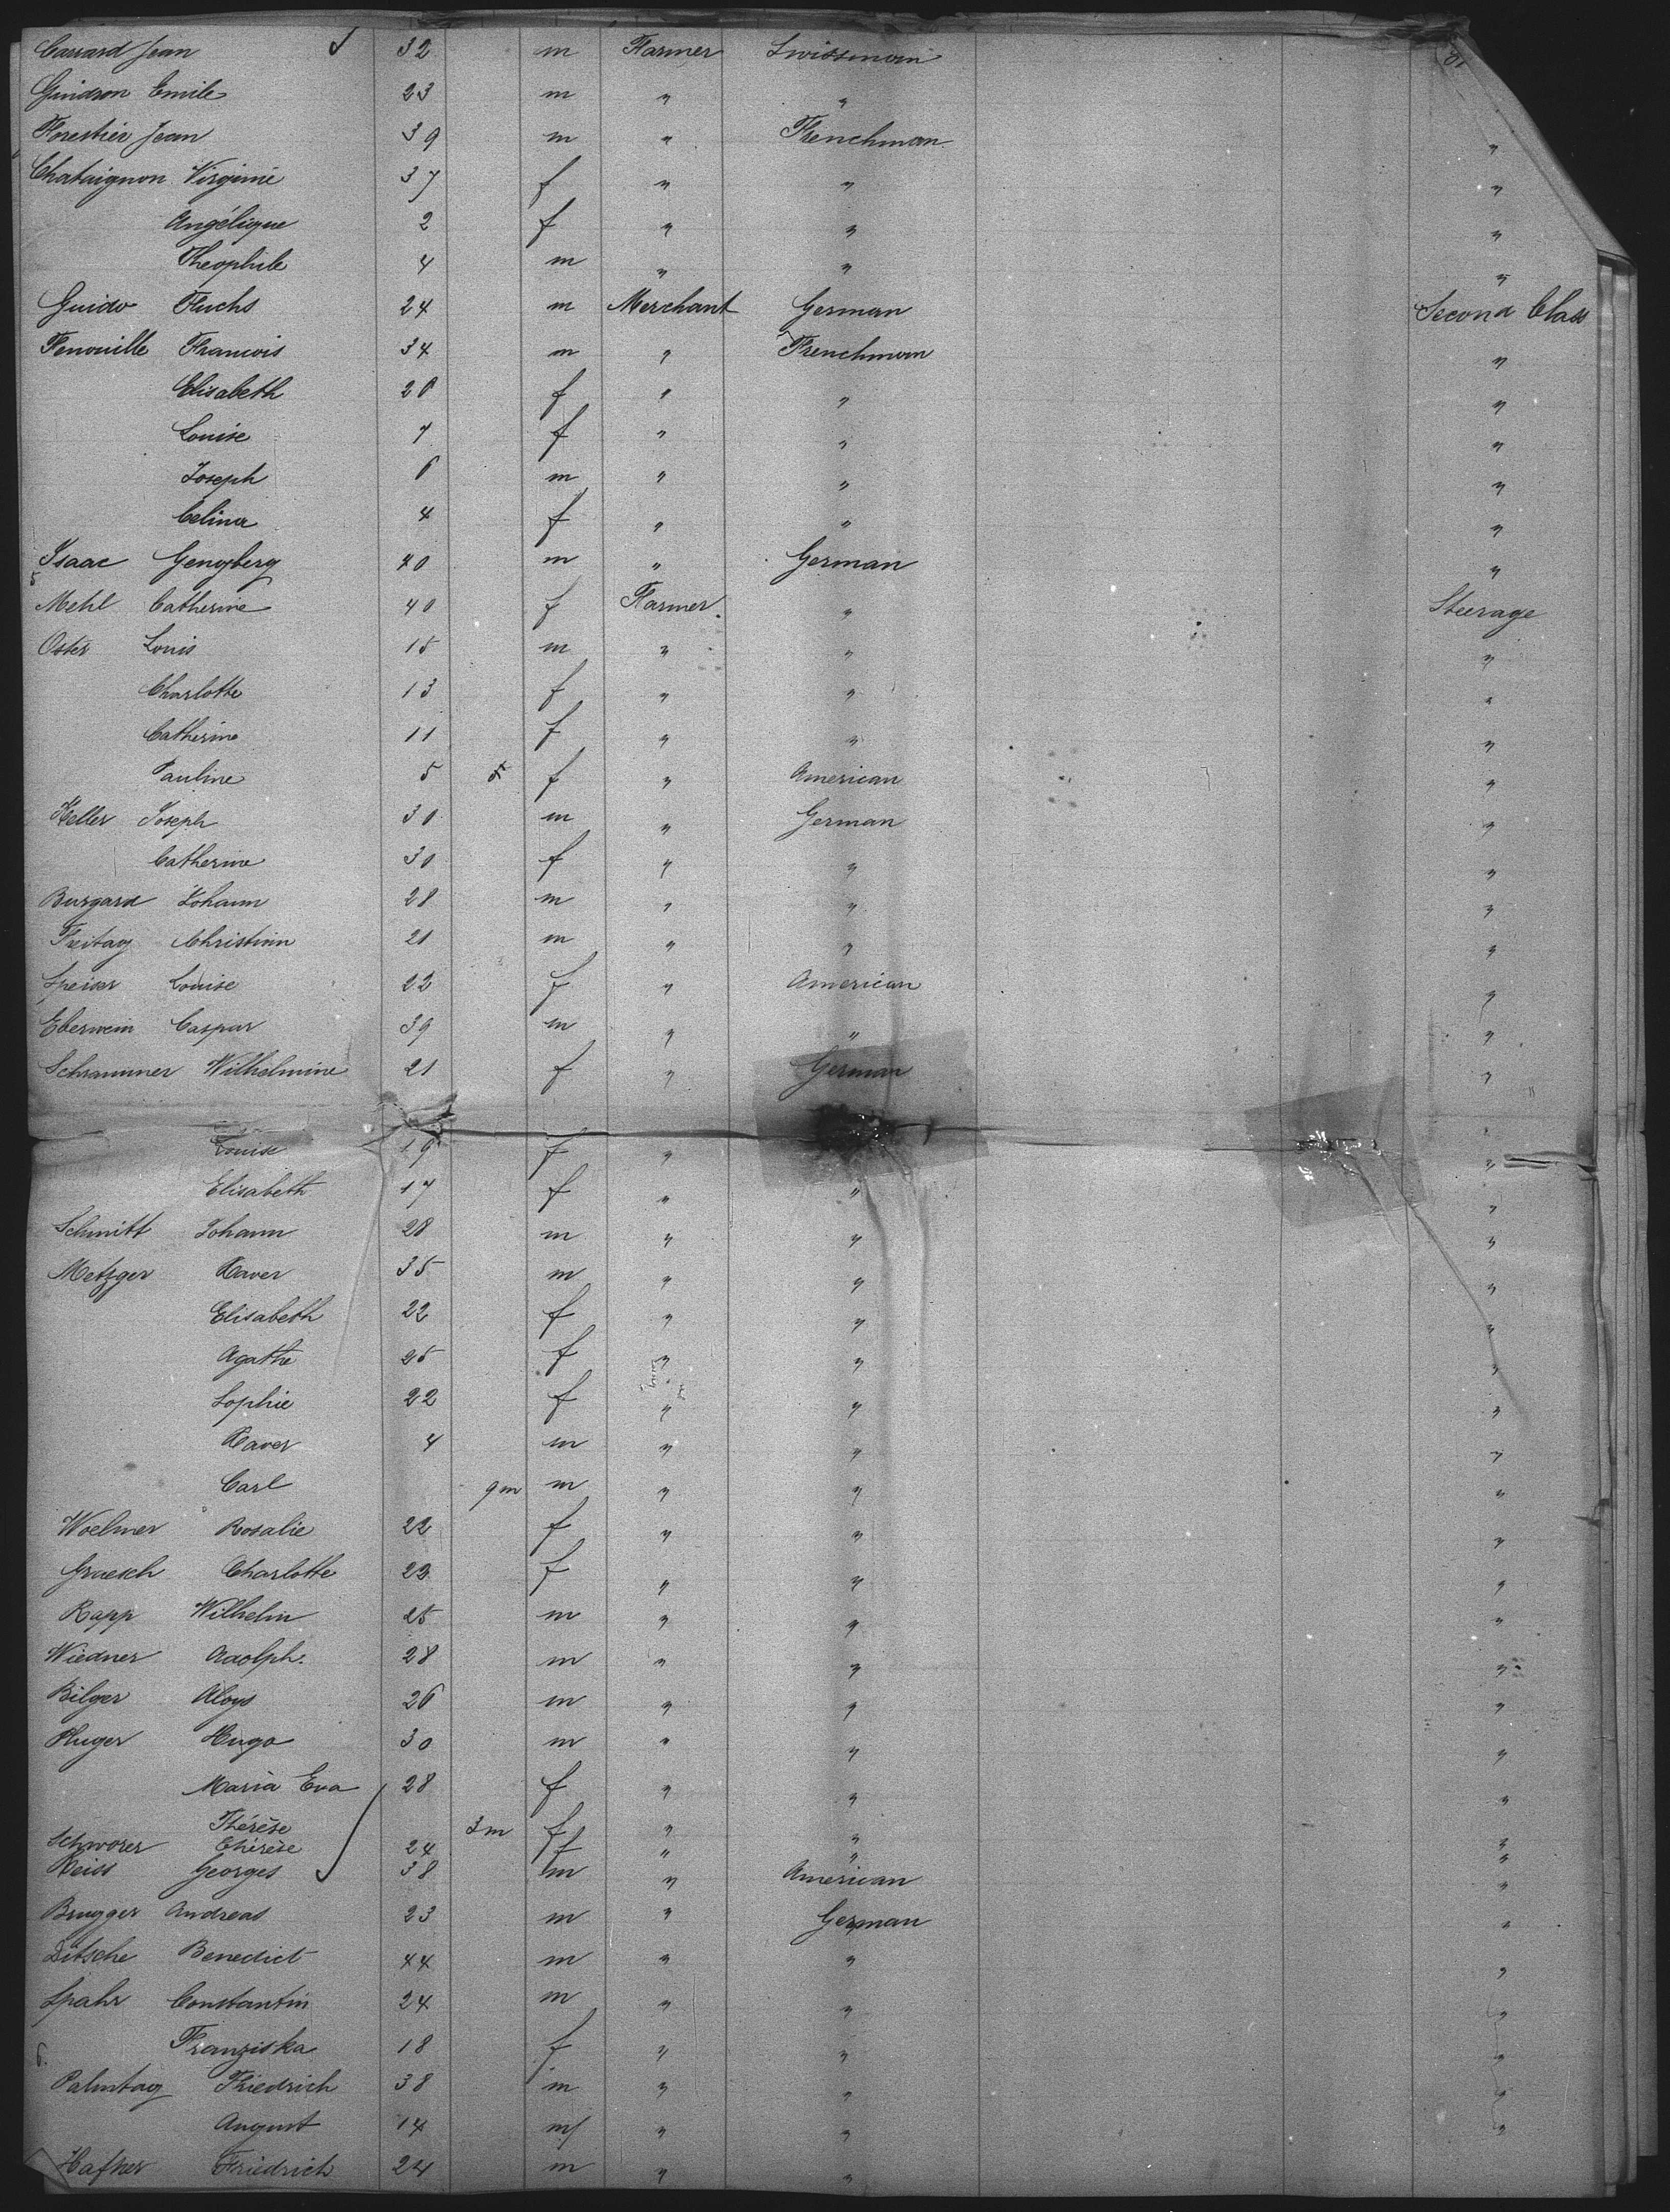 Carrard Jean 32 m Farmer Swissman
Guidson Emile 23 m " "
Forestier Jean 39 m " Frenchman "
Chataignon Virginie 37 f " " "
Angélique 2 f " " "
Theophile 4 m " " "
Guido Fuchs 24 m Merchant German Second Class
Fenouille Francois 34 m " Frenchman "
Elisabeth 26 f " " "
Louise 7 f " " "
Joseph 6 m " " "
Celina 4 f " " "
Isaac Gengberg 40 m " German "
5
Mehl Catherine 40 f Farmer " Steerage
Oster Louis 15 m " " "
Charlotte 13 f " " "
Catherine 11 f " " "
Pauline 5 f " American "
Keller Joseph 30 m " German "
Catherine 30 f " " "
Burgard Johann 28 m " " "
Freitag Christian 21 m " " "
Speiser Louise 22 f " American "
Eberwein Caspar 39 m " " "
Schrammer Wilhelmine 21 f " German "
Louise 19 f " "
Elisabeth 17 f " " "
Schmitt Johann 28 m " " "
Metzger Xaver 35 m " " "
Elisabeth 22 f " " "
Agathe 25 f " " "
Sophie 22 f " " "
Xaver 4 m " " "
Carl 9m m " " "
Woelmer Rosalie 22 f " " "
Graesch Charlotte 22 f " " "
Rapp Wilhelm 25 m " " "
Wiedner Adolph. 28 m " " "
Bilger Aloys 26 m " " "
Huger Hugo 30 m " " "
Maria Eva 28 f " " "
Thérèse 3m f " " "
Schworer Thérèse 24 f " " "
Reiss Georges 38 m " American "
Brugger Andreas 23 m " German "
Ditsche Benedict 44 m " " "
Spahr Constantin 24 m " " "
Franziska 18 f " " "
6.
Palmtag Friedrich 38 m " " "
August 14 m " " "
Hafner Friedrich 24 m " "